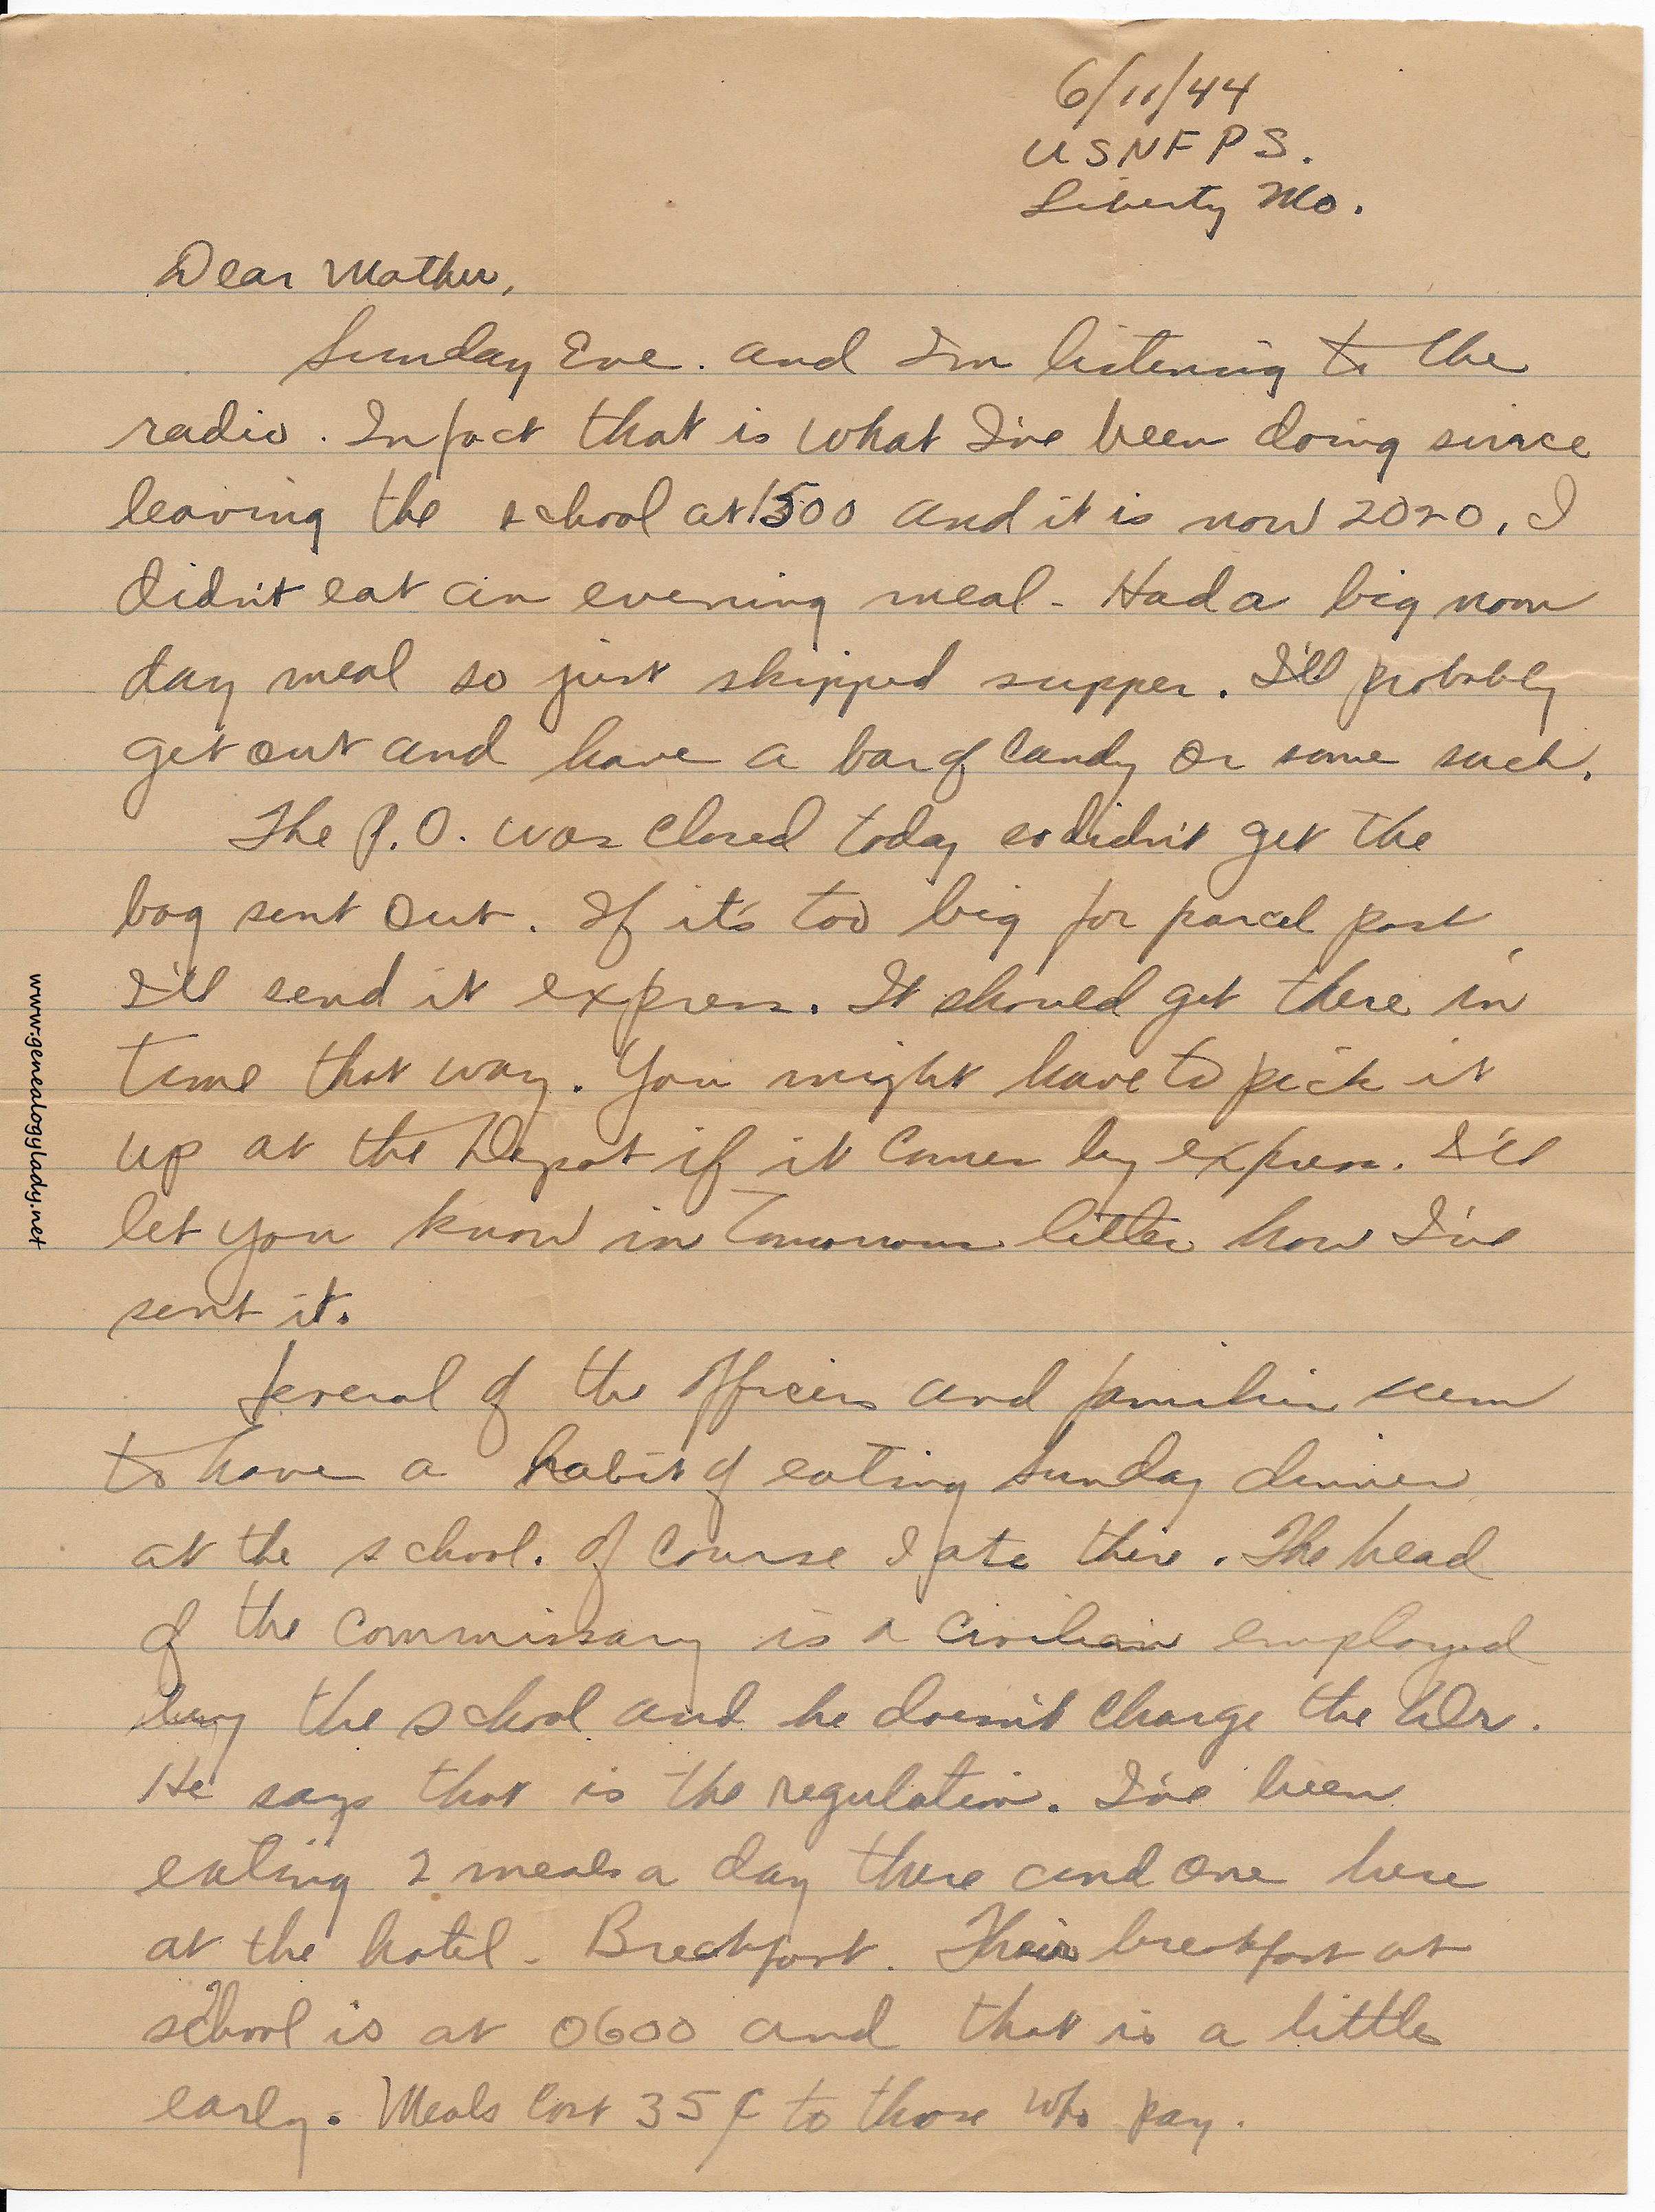 6/11/44
USNFPS.
Liberty Mo.
Dear Mother,
Sunday Eve. and I'm listening to the
radio. In fact that is what I've been doing since
leaving the school at 1500 and it is now 2020. I
didn't eat an evening meal - Had a big noon
day meal so just skipped supper. I'll probably
get out and have a bar of candy or some such.
The P.O. was closed today so didn't get the
bag sent out. If it's too big for parcel post,
I'll send it express. It should get there in
time that way. You might have to pick it
up at the Depot if it comes by express. I'll
let you know in Tomorrows letter how I've
sent it.
Several of the Officers and families seem
to have a habit of eating Sunday dinner
at the school. Of course I ate there. The head
of the commissary is a civilian employed
by the school and he doesn't charge the Dr.
He says that is the regulation. I've been
eating 2 meals a day there and one here
at the hotel - Breakfast. Their breakfast at
school is at 0600 and that is a little
early. Meals cost 35¢ to those who pay.
www.genealogylady.net